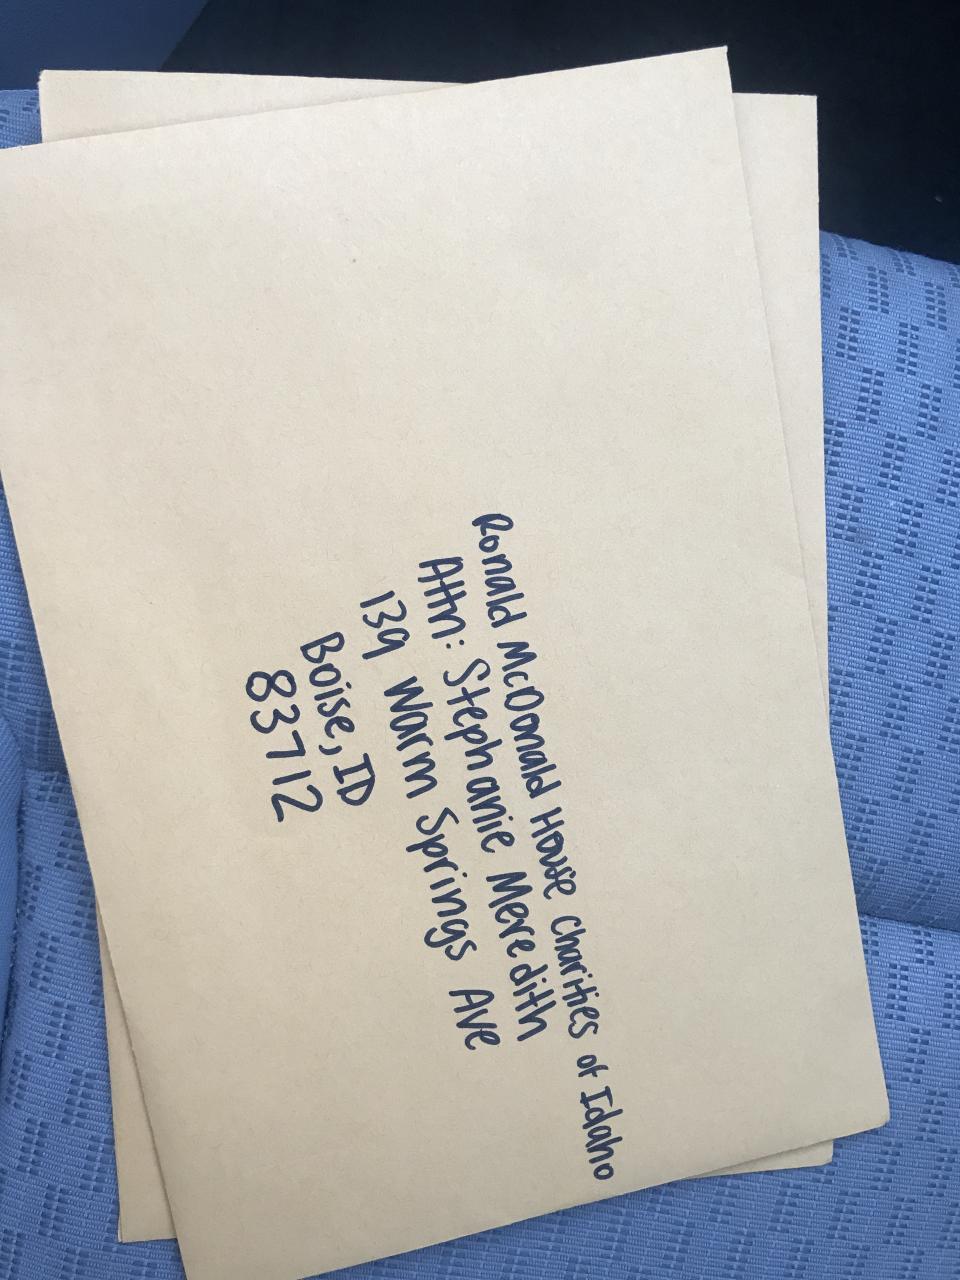 Ronald McDonald House Charities of Idaho
Attn: Stephanie Meredith
139 Warm Springs Ave
Boise, ID
83712